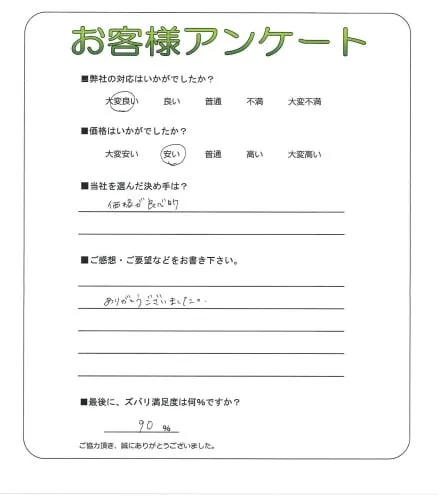 お客様アンケート
■弊社の対応はいかがでしたか？
大変良い 良い 普通 不満 大変不満
■価格はいかがでしたか？
大変安い 安い 普通 高い 大変高い
■当社を選んだ決め手は？
価格が良心的
■ご感想・ご要望などをお書き下さい。
ありがとうございました。
■最後に、ズバリ満足度は何％ですか？
90 ％
ご協力頂き、誠にありがとうございました。